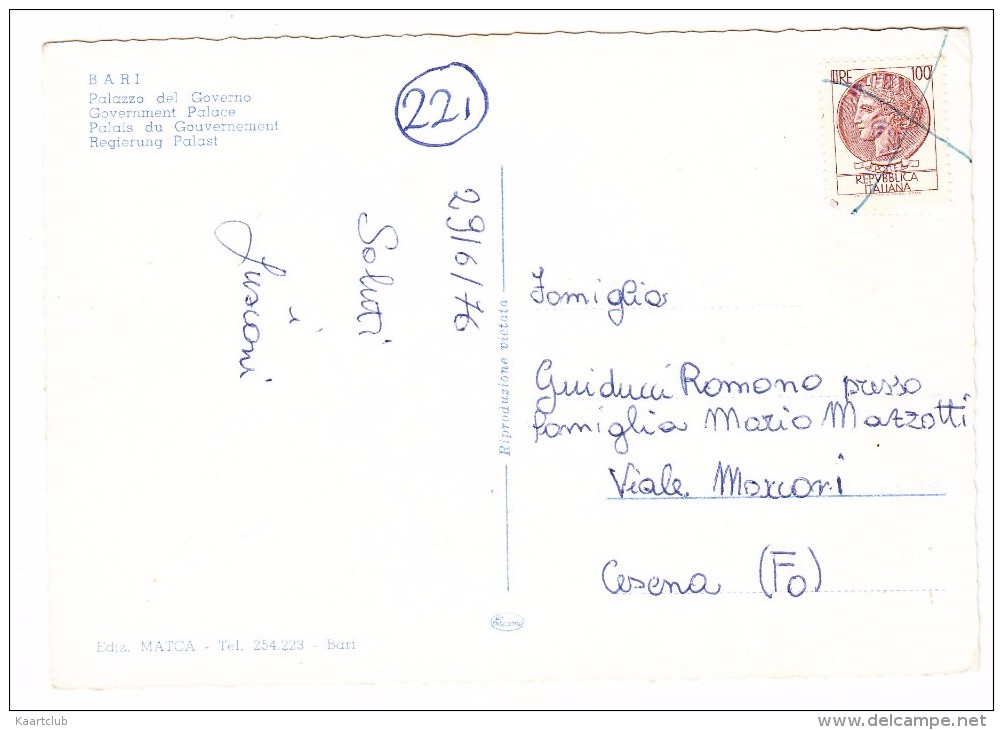 BARI
Palazzo del Governo
Government Palace
Palais du Gouvernement
Regierung Palast
221
LIRE 100
REPVBBLICA
ITALIANA
29/6/76
Saluti
i
Riproduzione vietata
Famiglia
Guiducci Romano presso
famiglia Mario Mazzotti
Viale Marconi
Cesena (Fo)
Ediz. MATCA - Tel. 254.223 - Bari
Kaartclub
delcampe.net